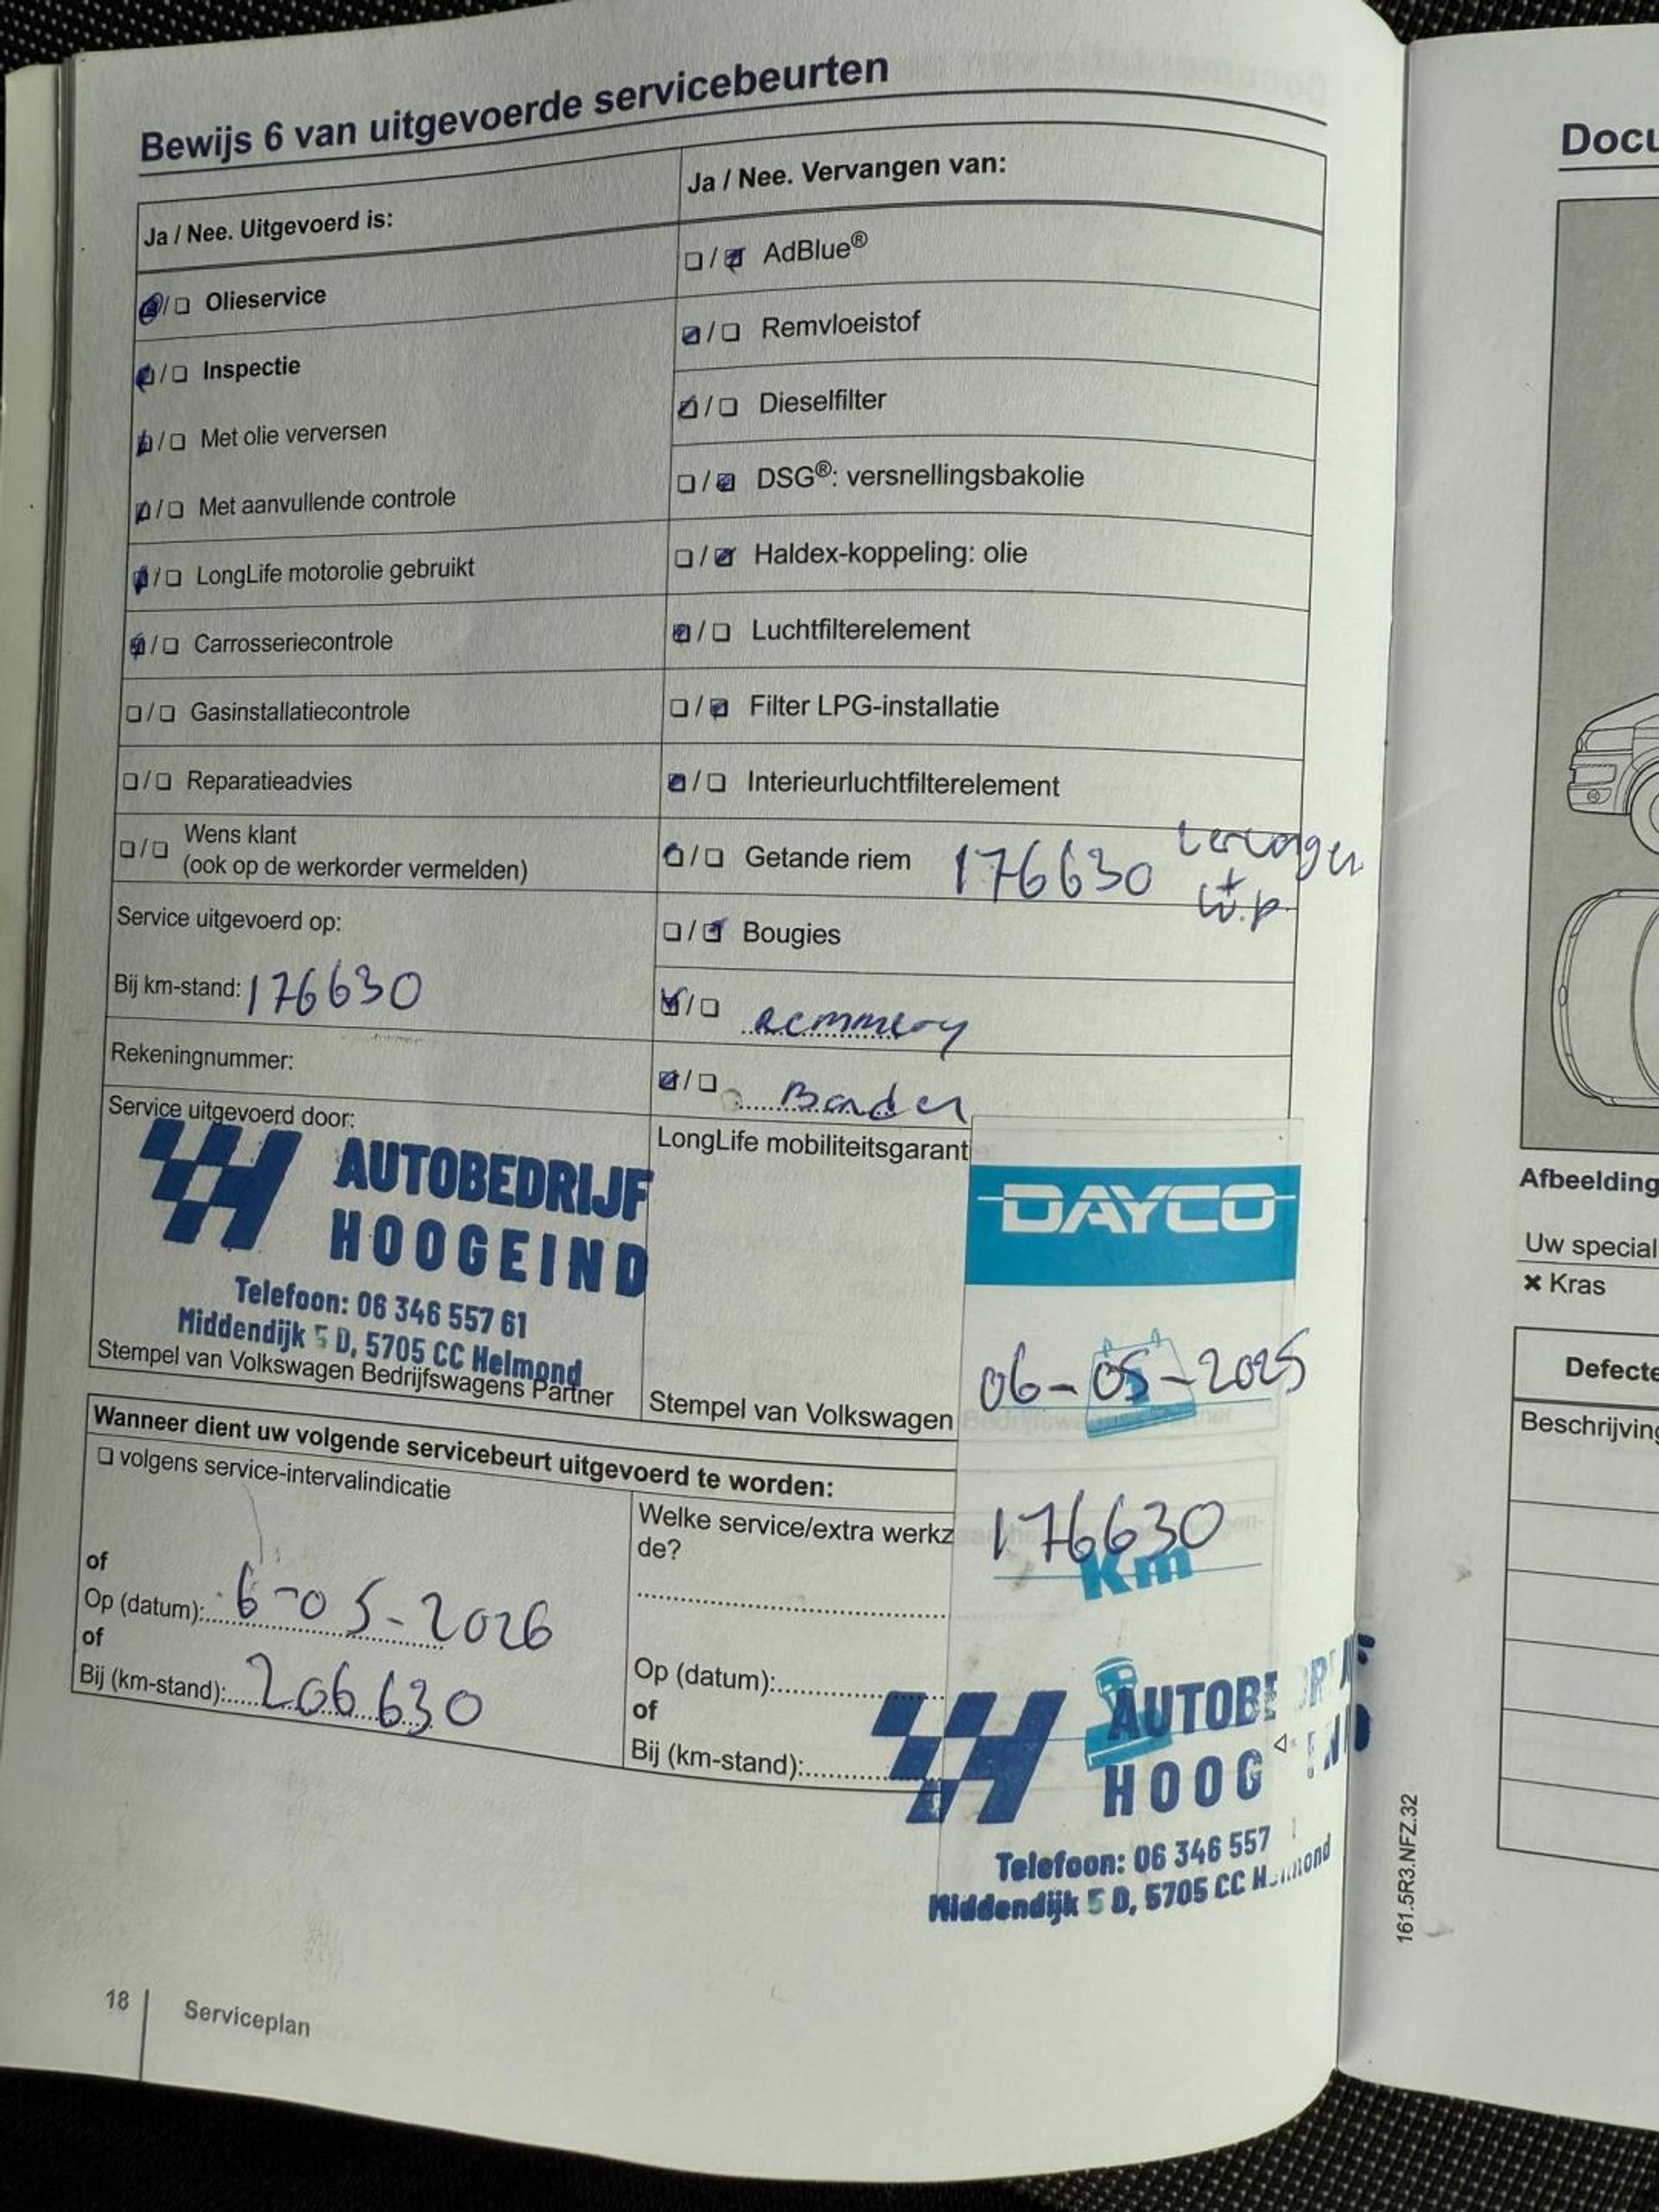 Bewijs 6 van uitgevoerde servicebeurten
Ja / Nee. Uitgevoerd is:
Olieservice
Inspectie
Met olie verversen
Met aanvullende controle
LongLife motorolie gebruikt
Carrosseriecontrole
Gasinstallatiecontrole
Reparatieadvies
Wens klant
(ook op de werkorder vermelden)
Service uitgevoerd op:
Bij km-stand: 176630
Rekeningnummer:
Service uitgevoerd door:
AUTOBEDRIJF
HOOGEIND
Telefoon: 06 346 557 61
Middendijk 5 D, 5705 CC Helmond
Stempel van Volkswagen Bedrijfswagens Partner
Ja / Nee. Vervangen van:
AdBlue®
Remvloeistof
Dieselfilter
DSG®: versnellingsbakolie
Haldex-koppeling: olie
Luchtfilterelement
Filter LPG-installatie
Interieurluchtfilterelement
Getande riem 176630
+ w.p.
Bougies
Banden
LongLife mobiliteitsgarant
Stempel van Volkswagen
DAYCO
06-05-2025
176630
Km
Wanneer dient uw volgende servicebeurt uitgevoerd te worden:
volgens service-intervalindicatie
of
Op (datum): 6-05-2026
of
Bij (km-stand): 206630
Welke service/extra werkz
de?
Op (datum):
of
Bij (km-stand):
AUTOBE
HOOG
Telefoon: 06 346 557
Middendijk 5 D, 5705 CC H mond
161.5R3.NFZ.32
18 Serviceplan
Docu
Afbeelding
Uw special
× Kras
Defecte
Beschrijving